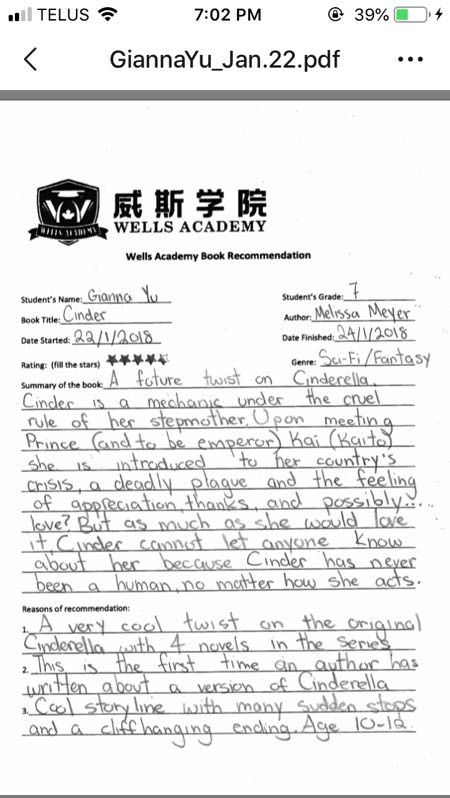 TELUS 7:02 PM 39%
GiannaYu_Jan.22.pdf
威斯学院
WELLS ACADEMY
WELLS ACADEMY
Wells Academy Book Recommendation
Student's Name: Gianna Yu Student's Grade: 7
Book Title: Cinder Author: Melissa Meyer
Date Started: 22/1/2018 Date Finished: 24/1/2018
Rating: (fill the stars) ★★★★★ Genre: Sci-Fi/Fantasy
Summary of the book: A future twist on Cinderella.
Cinder is a mechanic under the cruel
rule of her stepmother. Upon meeting
Prince (and to be emperor) Kai (Kaito)
she is introduced to her country's
crisis, a deadly plague and the feeling
of appreciation, thanks, and possibly....
love? But as much as she would love
it, Cinder cannot let anyone know
about her because Cinder has never
been a human, no matter how she acts.
Reasons of recommendation:
1. A very cool twist on the original
Cinderella with 4 novels in the series
2. This is the first time an author has
written about a version of Cinderella
3. Cool storyline with many sudden stops
and a cliffhanging ending. Age 10-12.